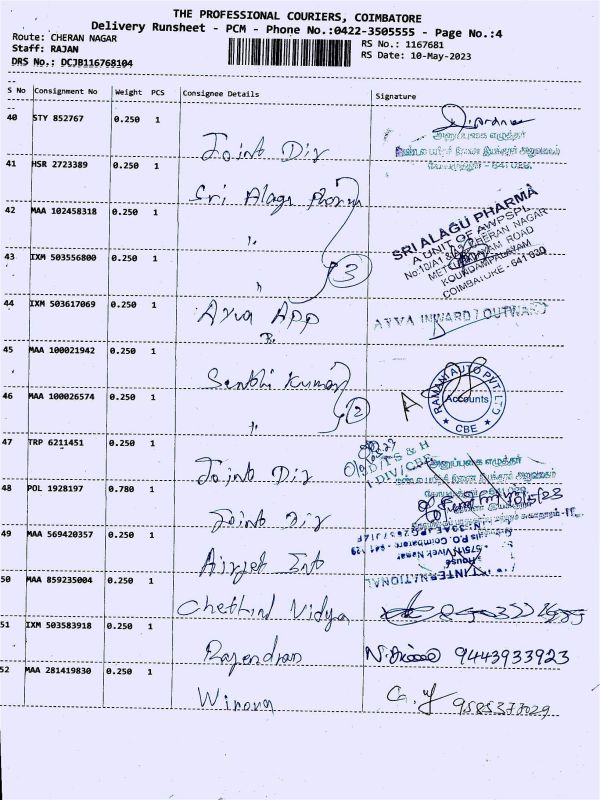 THE PROFESSIONAL COURIERS, COIMBATORE
Delivery Runsheet - PCM - Phone No.:0422-3505555 - Page No.:4
Route: CHERAN NAGAR
RS No.: 1167681
Staff: RAJAN
RS Date: 10-May-2023
DRS No.: DCJB116768104
S No Consignment No Weight PCS Consignee Details Signature
40 STY 852767 0.250 1
அனுப்புகை எழுத்தர்
Joint Dir
41 HSR 2723389 0.250 1
Sri Alagu Pharma
42 MAA 102458318 0.250 1
SRI ALAGU PHARMA
A UNIT OF AWPSPL
CHERAN NAGAR
ROAD
KOUNDAMPALAYAM
COIMBATORE - 641 030
"
43 IXM 503556800 0.250 1
3
"
44 IXM 503617069 0.250 1
Ayya APP
AYYA INWARD / OUTWARD
45 MAA 100021942 0.250 1
Senthi Kumar
RAMANI AUTO PVT. LTD
Accounts
CBE
46 MAA 100026574 0.250 1
2
"
47 TRP 6211451 0.250 1
O/o.D/TS & H
I-DIV/CBE
அனுப்புகை எழுத்தர்
Joint Dir
48 POL 1928197 0.780 1
10/5/23
Joint Dir
49 MAA 569420357 0.250 1
Vivek Nagar
P.O. Coimbatore - 641 029
House
INTERNATIONAL
Airjet Int
50 MAA 859235004 0.250 1
Chettind Vidya
51 IXM 503583918 0.250 1
Rajendran
9443933923
52 MAA 281419830 0.250 1
Winova
9585373029